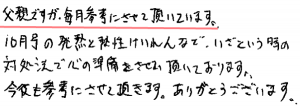 父親ですが、毎月参考にさせて頂いています。
10月号の発熱と熱性けいれんなど、いざという時の
対処法で心の準備をさせて頂いております。
今後も参考にさせて頂きます。ありがとうございます。